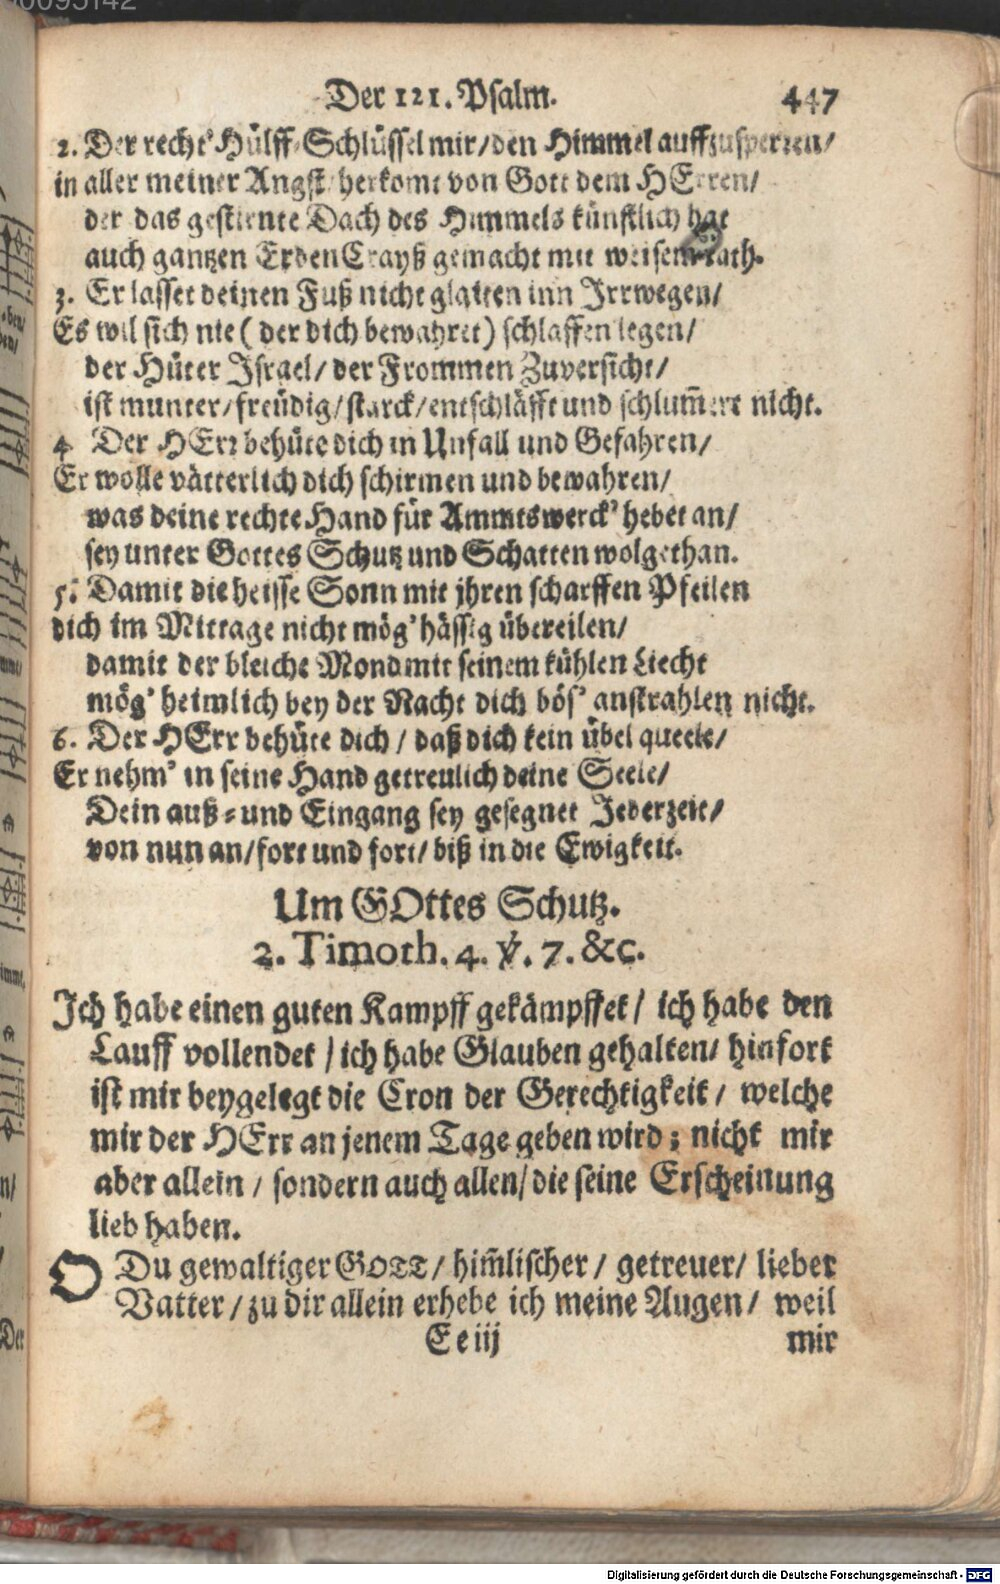 Der 121. Psalm. 447
2. Der recht' Hülff-Schlüssel mir/den Himmel auffzusperren/
in aller meiner Angst/herkomt von Gott dem HErren/
der das gestirnte Dach des Himmels künstlich hat
auch gantzen ErdenCrayß gemacht mit weisem rath.
3. Er lasset deinen Fuß nicht glaiten inn Irrwegen/
Es wil sich nie (der dich bewahret) schlaffen legen/
der Hüter Israel/der Frommen Zuversicht/
ist munter/freüdig/starck/entschläfft und schlum̃ert nicht.
4 Der HErr behüte dich in Unfall und Gefahren/
Er wolle vätterlich dich schirmen und bewahren/
was deine rechte Hand für Ammtswerck' hebet an/
sey unter Gottes Schutz und Schatten wolgethan.
5. Damit die heisse Sonn mit jhren scharffen Pfeilen
dich im Mittage nicht mög' hässig übereilen/
damit der bleiche Mond mit seinem kühlen Liecht
mög' heimlich bey der Nacht dich bös' anstrahlen nicht.
6. Der HErr behüte dich / daß dich kein übel queele/
Er nehm' in seine Hand getreulich deine Seele/
Dein auß-und Eingang sey gesegnet Jederzeit/
von nun an/fort und fort/biß in die Ewigkeit.
Um GOttes Schutz.
2. Timoth. 4. ℣. 7. &c.
Ich habe einen guten Kampff gekämpffet/ ich habe den
Lauff vollendet / ich habe Glauben gehalten/ hinfort
ist mir beygelegt die Cron der Gerechtigkeit / welche
mir der HErr an jenem Tage geben wird; nicht mir
aber allein / sondern auch allen/die seine Erscheinung
lieb haben.
O Du gewaltiger GOTT/ him̃lischer / getreuer/ lieber
Vatter / zu dir allein erhebe ich meine Augen/ weil
Ee iij mir
Der
Digitalisierung gefördert durch die Deutsche Forschungsgemeinschaft - DFG